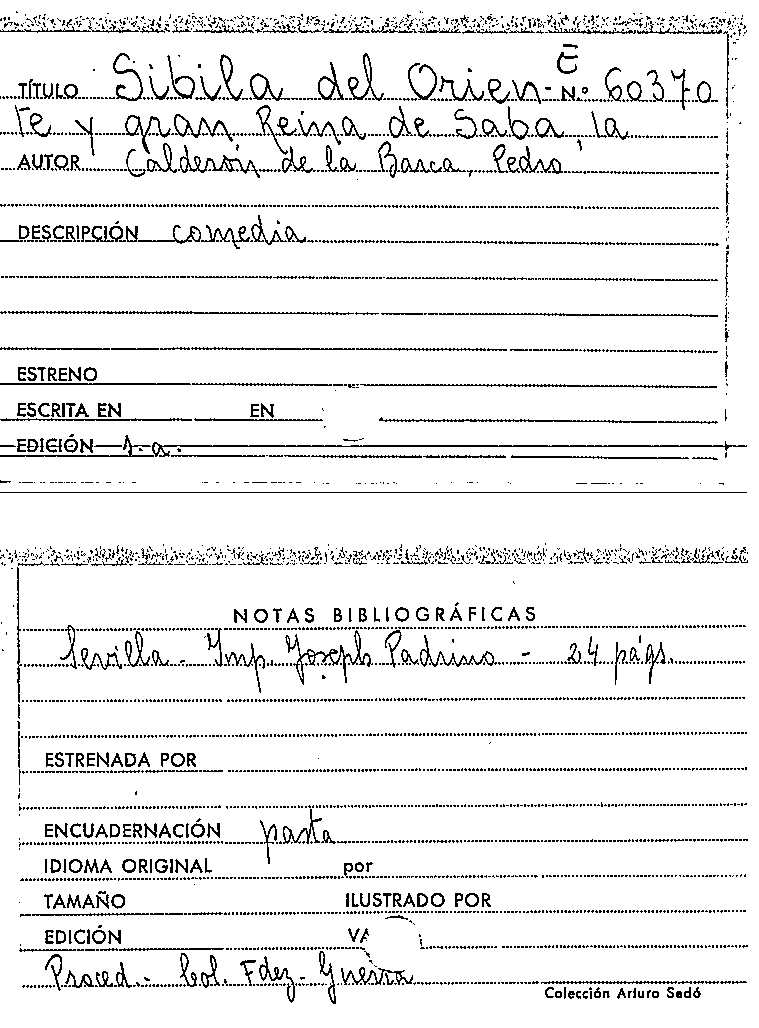 E
TÍTULO Sibila del Orien- N.º 60370
te y gran Reina de Saba, la
AUTOR Calderón de la Barca, Pedro
DESCRIPCIÓN comedia
ESTRENO
ESCRITA EN EN
EDICIÓN s.a.
NOTAS BIBLIOGRÁFICAS
Sevilla - Imp. Joseph Padrino - 24 págs.
ESTRENADA POR
ENCUADERNACIÓN pasta
IDIOMA ORIGINAL por
TAMAÑO ILUSTRADO POR
EDICIÓN
Proced.- Col. Fdez-Guerra
Colección Arturo Sedó